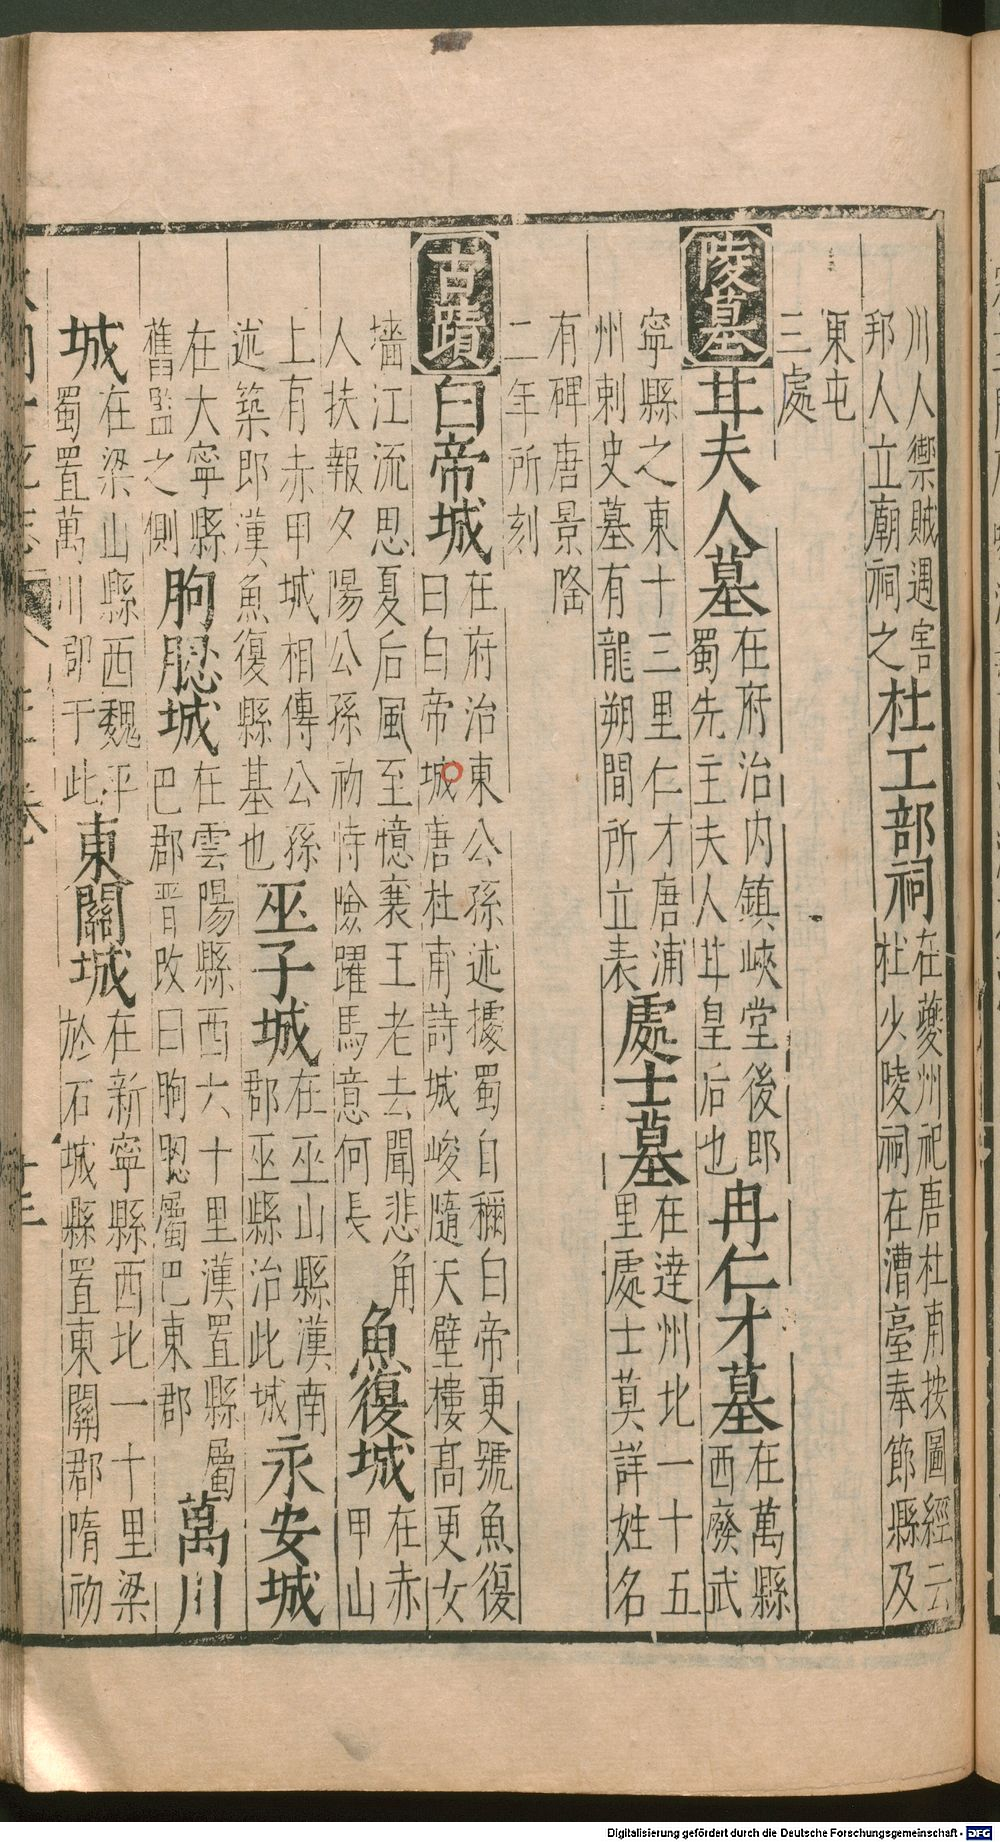 川人禦賊遇害
邦人立廟祠之
杜工部祠
在夔州祀唐杜甫按圖經云
杜少陵祠在漕臺奉節縣及
東屯
三處
陵墓
甘夫人墓
在府治内鎮峽堂後即
蜀先主夫人甘皇后也
冉仁才墓
在萬縣
西廢武
寧縣之東十三里仁才唐浦
州刺史墓有龍朔間所立表
處士墓
在達州北一十五
里處士莫詳姓名
有碑唐景隆
二年所刻
古蹟
白帝城
在府治東公孫述據蜀自稱白帝更號魚復
曰白帝城唐杜甫詩城峻隨天壁樓高更女
墻江流思夏后風至憶襄王老去聞悲角
人扶報夕陽公孫初恃險躍馬意何長
魚復城
在赤
甲山
上有赤甲城相傳公孫
述築即漢魚復縣基也
巫子城
在巫山縣漢南
郡巫縣治此城
永安城
在大寧縣
舊監之側
朐䏰城
在雲陽縣西六十里漢置縣屬
巴郡晉改曰朐䏰屬巴東郡
萬川
城
在梁山縣西魏平
蜀置萬川郡于此
東關城
在新寧縣西北一十里梁
於石城縣置東關郡隋初
Digitalisierung gefördert durch die Deutsche Forschungsgemeinschaft - DFG